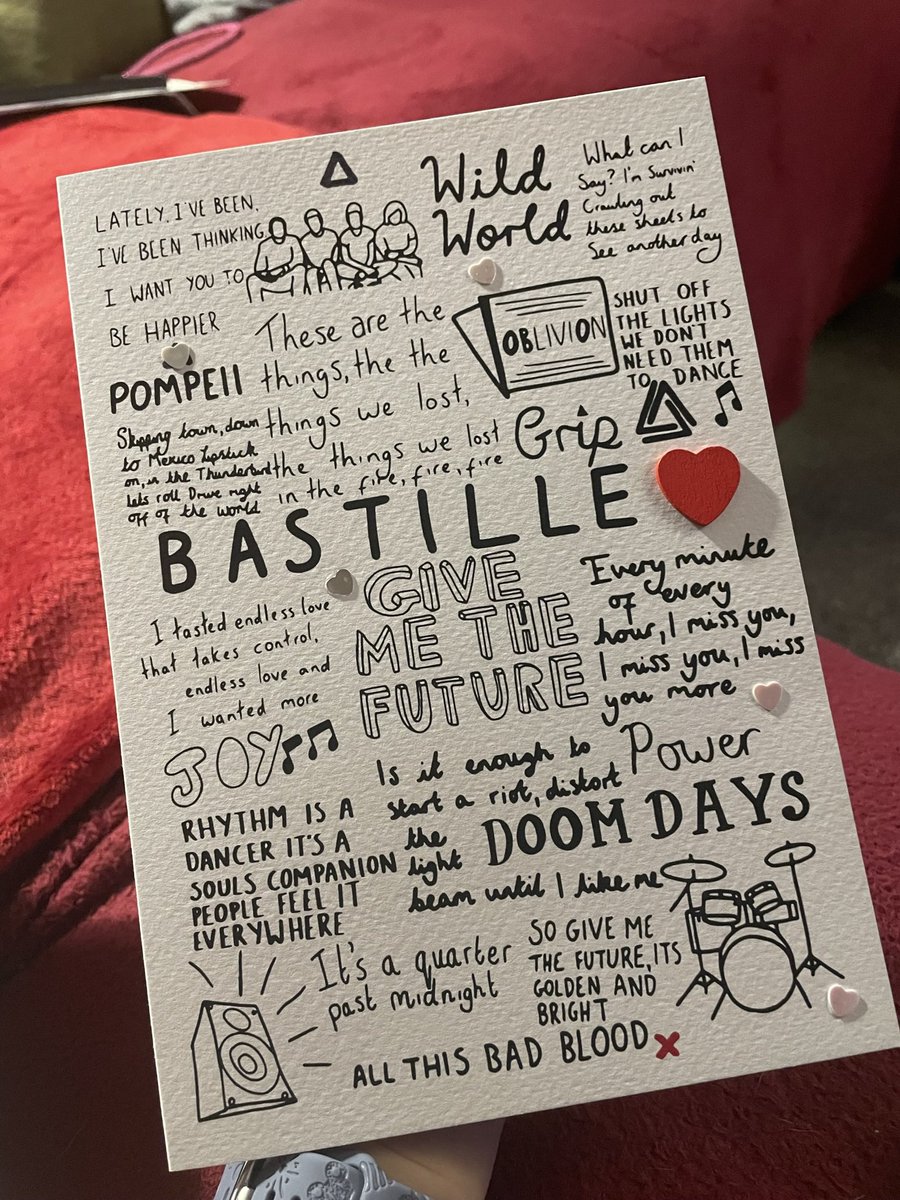 LATELY, I'VE BEEN,
I'VE BEEN THINKING
I WANT YOU TO
BE HAPPIER
Wild
World
What can I
Say? I'm Survivin'
Crawling out
these sheets to
See another day
These are the
things, the the
things we lost,
the things we lost
in the fire, fire, fire
OBLIVION
SHUT OFF
THE LIGHTS
WE DON'T
NEED THEM
TO DANCE
POMPEII
Skipping town, down
to Mexico Lipstick
on, in the Thunderbird
lets roll Drive right
off of the world
Grip
BASTILLE
I tasted endless love
that takes control,
endless love and
I wanted more
GIVE
ME THE
FUTURE
Every minute
of every
hour, I miss you,
I miss you, I miss
you more
JOY
Is it enough to
start a riot, distort
the
light
beam until I like me
Power
DOOM DAYS
RHYTHM IS A
DANCER IT'S A
SOULS COMPANION
PEOPLE FEEL IT
EVERYWHERE
It's a quarter
past midnight
SO GIVE ME
THE FUTURE, ITS
GOLDEN AND
BRIGHT
ALL THIS BAD BLOOD x